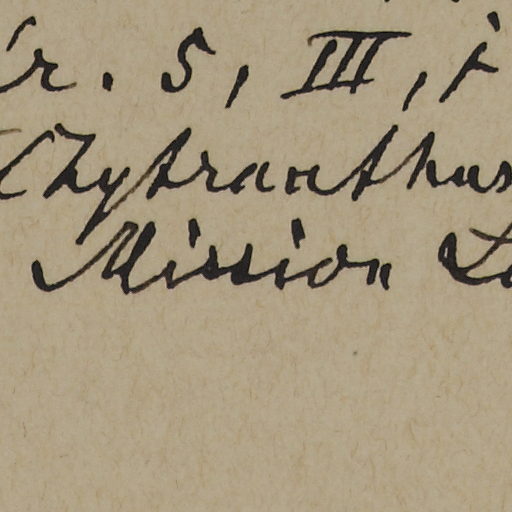 r. 5, III, i
Chytranthus
Mission